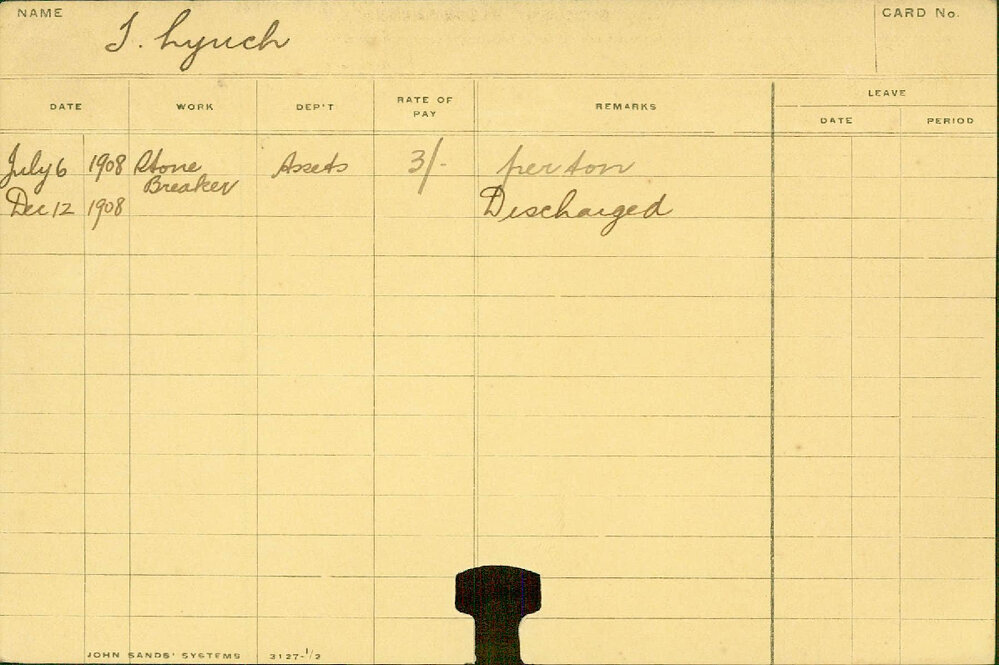 NAME
CARD No.
J. Lynch
DATE WORK DEP'T RATE OF PAY REMARKS LEAVE
DATE PERIOD
July 6 1908 Stone Breaker Assets 3/- per ton
Dec 12 1908 Discharged
JOHN SANDS' SYSTEMS 3127-1/2